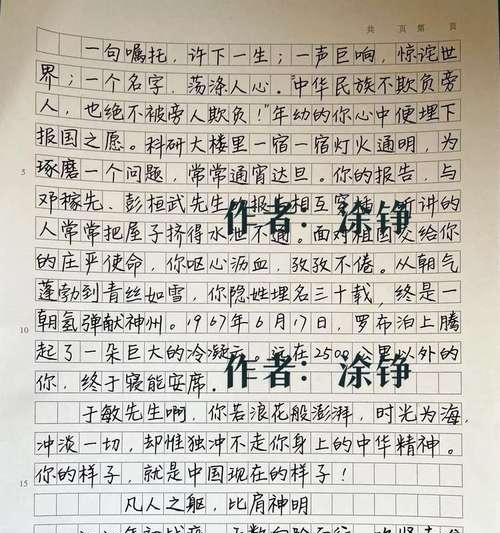 共 页 第 页
一句嘱托，许下一生；一声巨响，惊诧世
界；一个名字，荡涤人心。“中华民族不欺负旁
人，也绝不被旁人欺负！”年幼的你心中便埋下
报国之愿。科研大楼里一宿一宿灯火通明，为
5 琢磨一个问题，常常通宵达旦。你的报告，与
邓稼先、彭桓武先生的报告相互穿插，听讲的
作者：涂铮
人常常把屋子挤得水泄不通。面对祖国交给你
的庄严使命，你呕心沥血，孜孜不倦。从朝气
蓬勃到青丝如雪，你隐姓埋名三十载，终是一
10 朝氢弹献神州。1967年6月17日，罗布泊上腾
起了一朵巨大的冷凝云。远在2500公里以外的
作者：涂铮
你，终于寝能安席。
于敏先生啊，你若浪花般澎湃，时光为海，
冲淡一切，却惟独冲不走你身上的中华精神。
你的样子，就是中国现在的样子！
15
凡人之躯，比肩神明